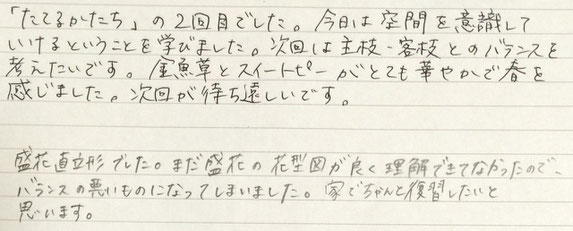 「たてるかたち」の2回目でした。今日は空間を意識して
いけるということを学びました。次回は主枝・客枝とのバランスを
考えたいです。金魚草とスイートピーがとても華やかで春を
感じました。次回が待ち遠しいです。
盛花直立形でした。まだ盛花の花型図が良く理解できてなかったので、
バランスの悪いものになってしまいました。家でちゃんと復習したいと
思います。